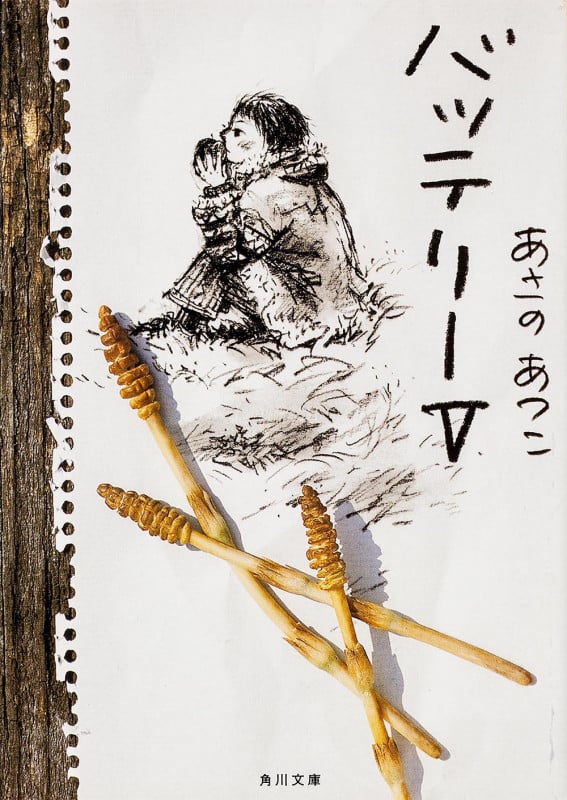 バッテリーⅤ
あさの あつこ
角川文庫